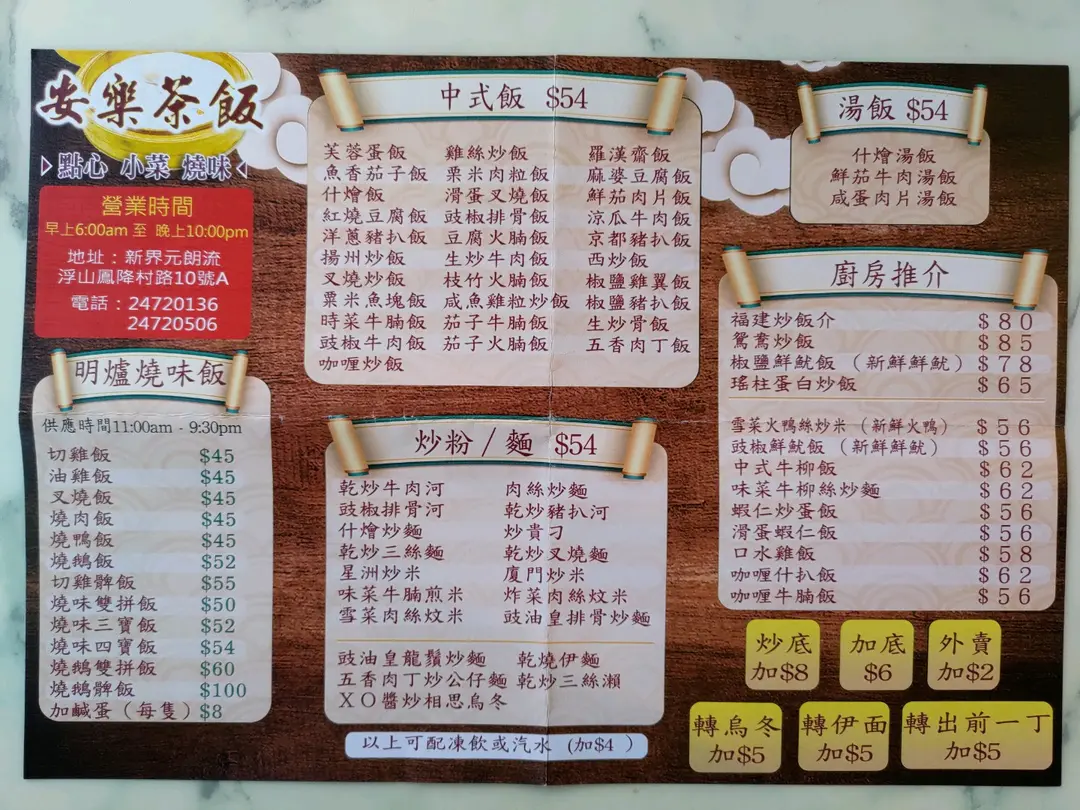 安樂茶飯
點心 小菜 燒味
營業時間
早上6:00am 至 晚上10:00pm
地址：新界元朗流
浮山鳳降村路10號A
電話：24720136
24720506
明爐燒味飯
供應時間11:00am - 9:30pm
切雞飯 $45
油雞飯 $45
叉燒飯 $45
燒肉飯 $45
燒鴨飯 $45
燒鵝飯 $52
切雞髀飯 $55
燒味雙拼飯 $50
燒味三寶飯 $52
燒味四寶飯 $54
燒鵝雙拼飯 $60
燒鵝髀飯 $100
加鹹蛋（每隻）$8
中式飯 $54
芙蓉蛋飯 雞絲炒飯 羅漢齋飯
魚香茄子飯 粟米肉粒飯 麻婆豆腐飯
什燴飯 滑蛋叉燒飯 鮮茄肉片飯
紅燒豆腐飯 豉椒排骨飯 涼瓜牛肉飯
洋蔥豬扒飯 豆腐火腩飯 京都豬扒飯
揚州炒飯 生炒牛肉飯 西炒飯
叉燒炒飯 枝竹火腩飯 椒鹽雞翼飯
粟米魚塊飯 咸魚雞粒炒飯 椒鹽豬扒飯
時菜牛腩飯 茄子牛腩飯 生炒骨飯
豉椒牛肉飯 茄子火腩飯 五香肉丁飯
咖喱炒飯
炒粉/麵 $54
乾炒牛肉河 肉絲炒麵
豉椒排骨河 乾炒豬扒河
什燴炒麵 炒貴刁
乾炒三絲麵 乾炒叉燒麵
星洲炒米 廈門炒米
味菜牛腩煎米 炸菜肉絲炆米
雪菜肉絲炆米 豉油皇排骨炒麵
豉油皇龍鬚炒麵 乾燒伊麵
五香肉丁炒公仔麵 乾炒三絲瀨
XO醬炒相思烏冬
以上可配凍飲或汽水（加$4 ）
湯飯 $54
什燴湯飯
鮮茄牛肉湯飯
咸蛋肉片湯飯
廚房推介
福建炒飯介 $80
鴛鴦炒飯 $85
椒鹽鮮魷飯（新鮮鮮魷）$78
瑤柱蛋白炒飯 $65
雪菜火鴨絲炒米（新鮮火鴨）$56
豉椒鮮魷飯（新鮮鮮魷）$56
中式牛柳飯 $62
味菜牛柳絲炒麵 $62
蝦仁炒蛋飯 $56
滑蛋蝦仁飯 $56
口水雞飯 $58
咖喱什扒飯 $62
咖喱牛腩飯 $56
炒底 加底 外賣
加$8 $6 加$2
轉烏冬 轉伊面 轉出前一丁
加$5 加$5 加$5